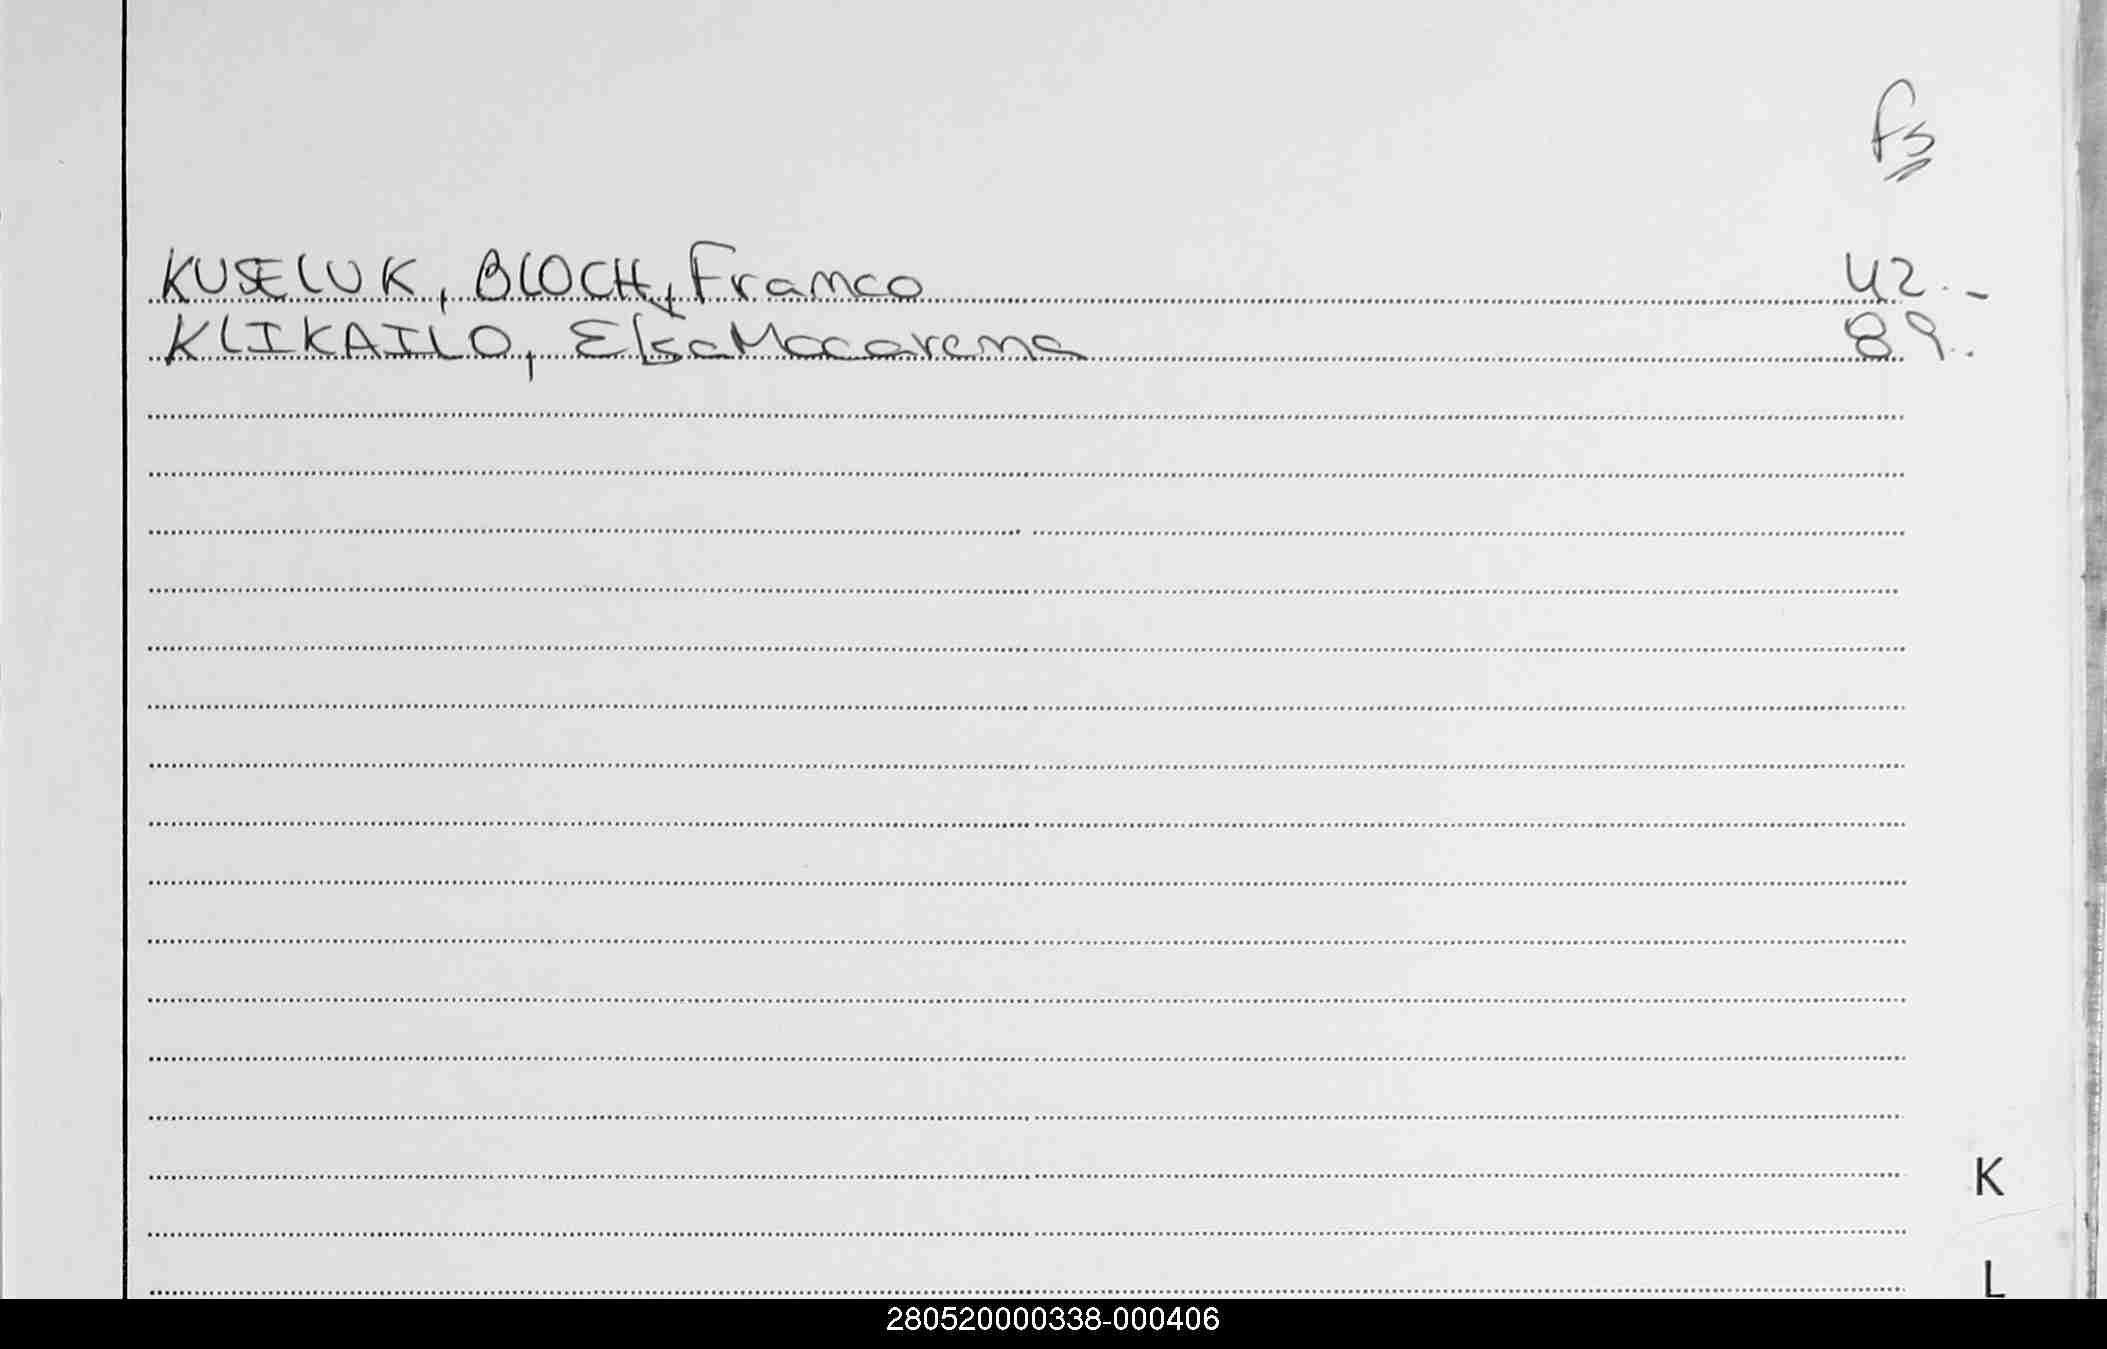 fs
KUSELUK, BLOCH, Franco 42.-
KLIKAILO, Elsa Macarena 89..
K
L
280520000338-000406